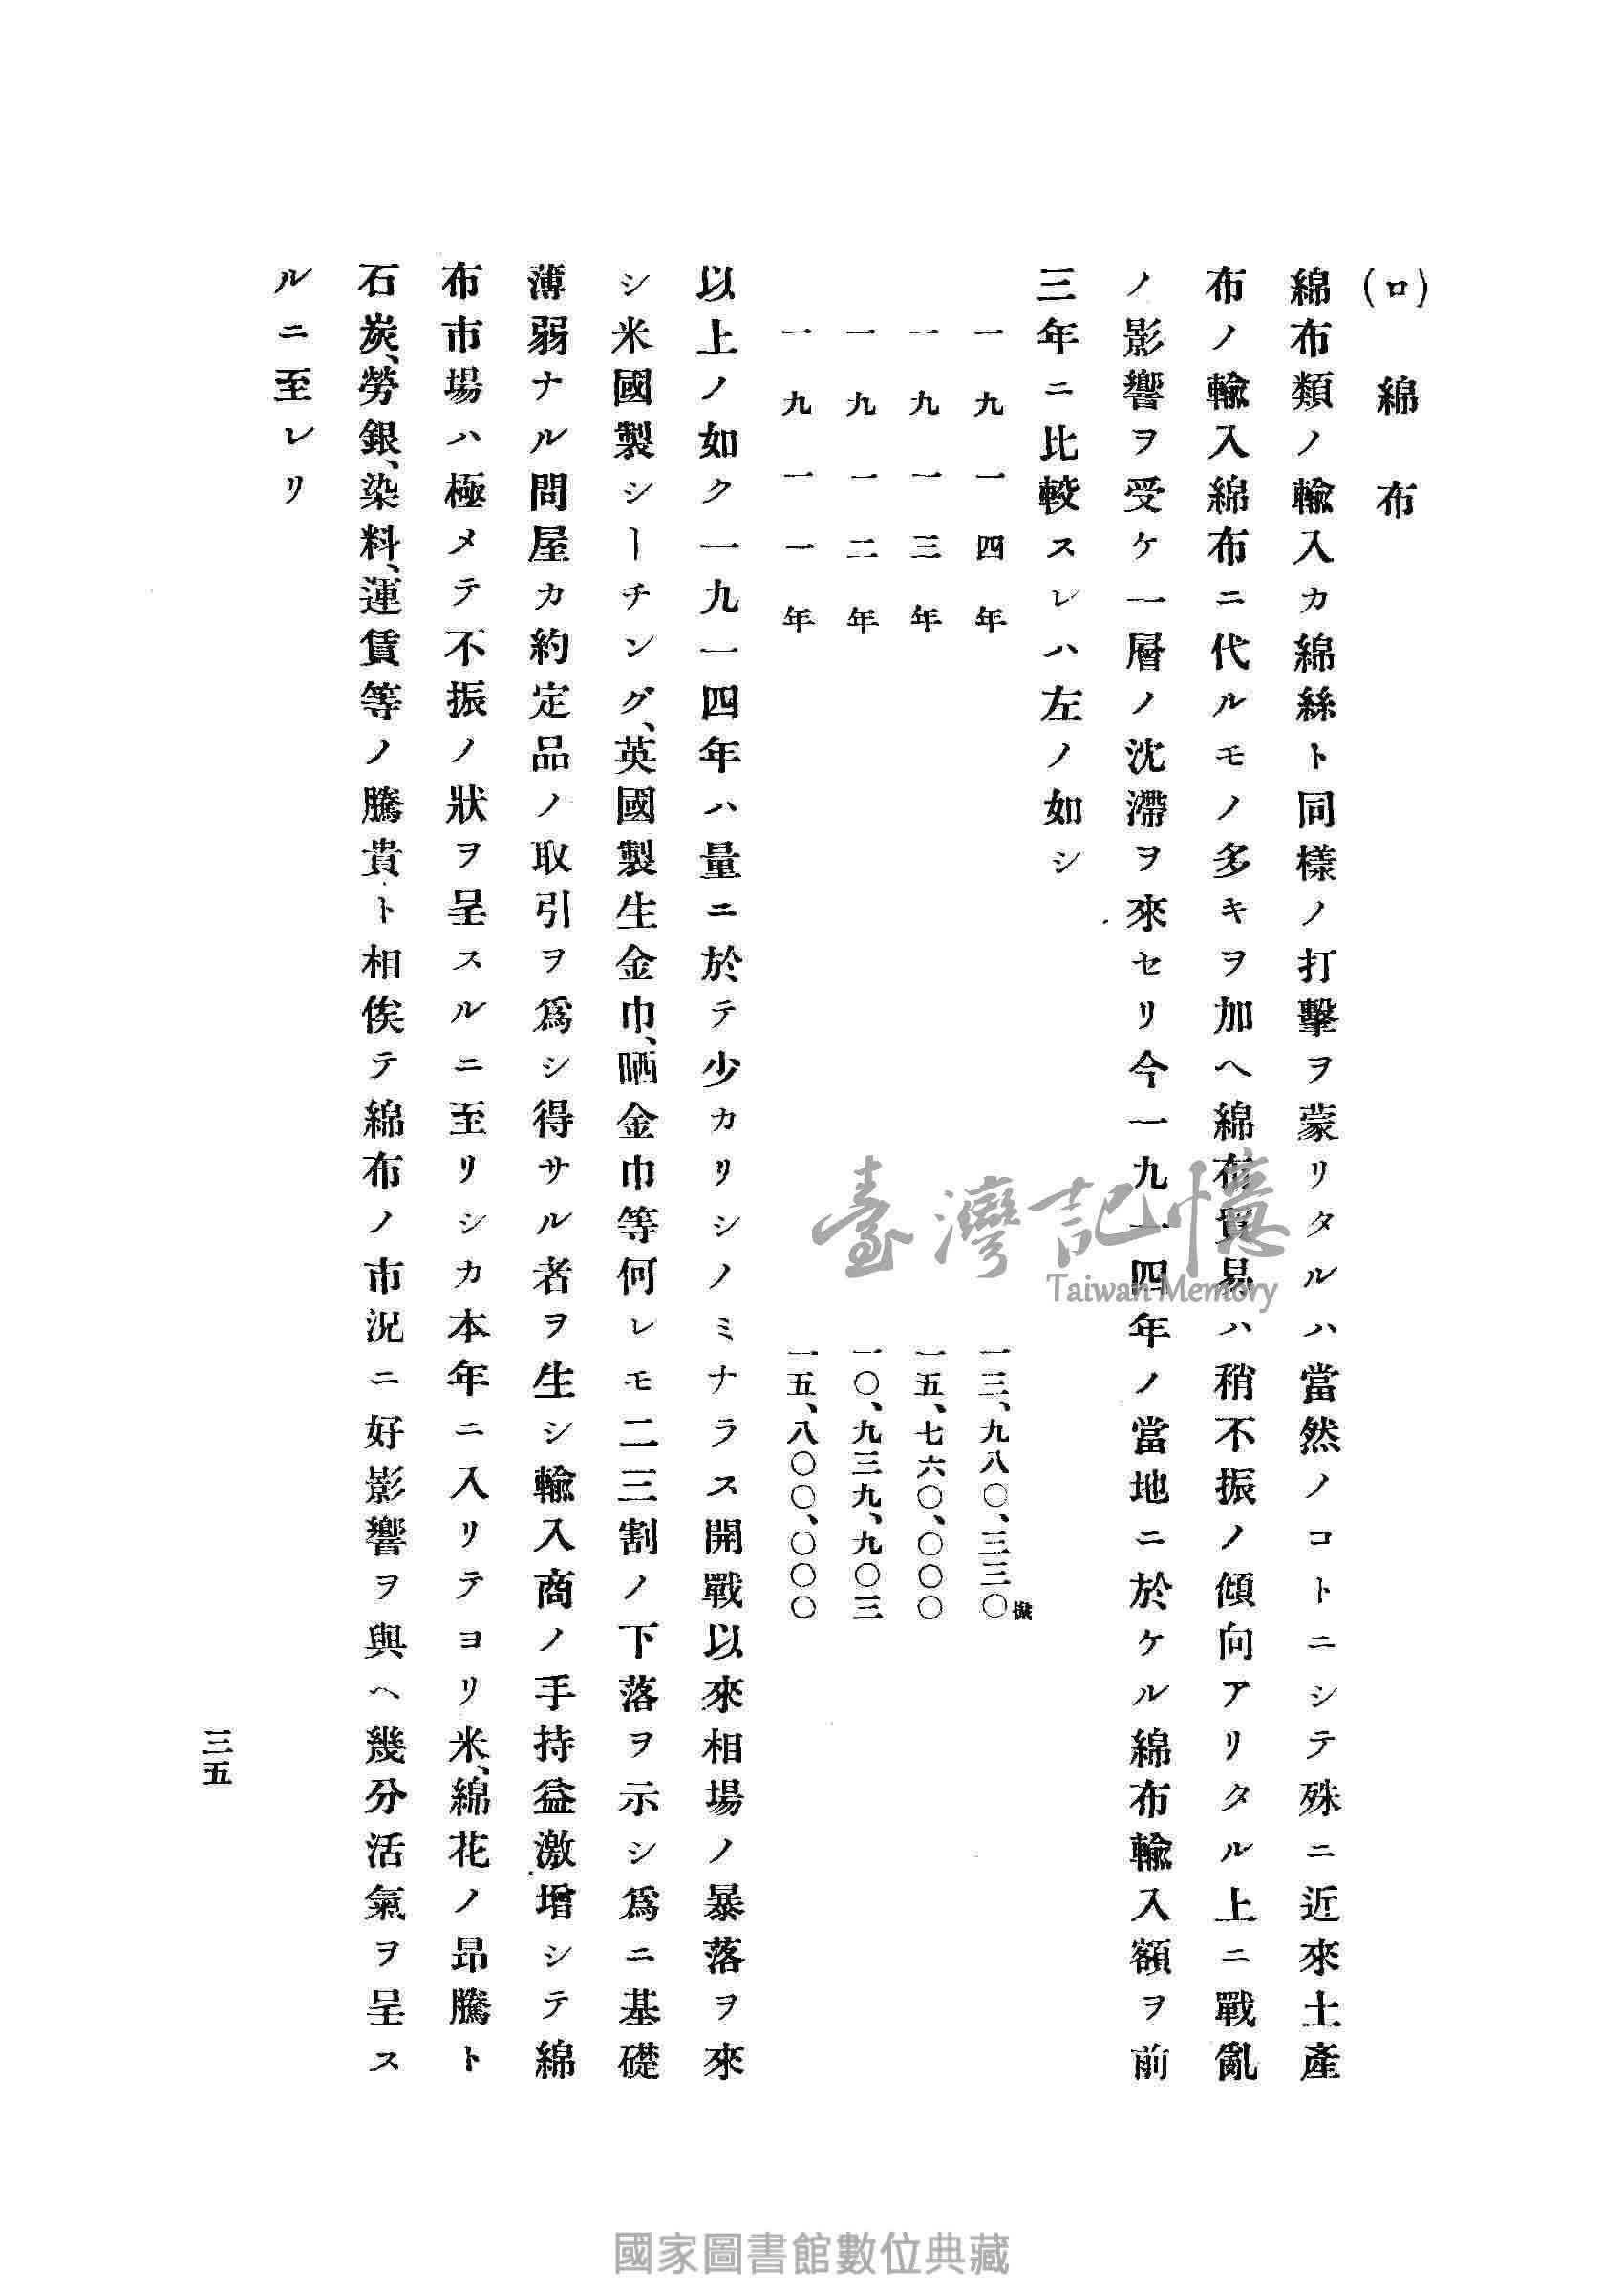 (ロ) 綿布
綿布類ノ輸入カ綿絲ト同樣ノ打擊ヲ蒙リタルハ當然ノコトニシテ殊ニ近來土產
布ノ輸入綿布ニ代ルモノ多キヲ加ヘ綿布貿易ハ稍不振ノ傾向アリタル上ニ戰亂
ノ影響ヲ受ケ一層ノ沈滯ヲ來セリ今一九一四年ノ當地ニ於ケル綿布輸入額ヲ前
三年ニ比較スレハ左ノ如シ
一九一四年 一三、九八〇、三三〇
一九一三年 一五、七六〇、〇〇〇
一九一二年 一〇、九三九、九〇三
一九一一年 一五、八〇〇、〇〇〇
以上ノ如ク一九一四年ハ量ニ於テ少カリシノミナラス開戰以來相場ノ暴落ヲ來
シ米國製シーチング、英國製生金巾、晒金巾等何レモ二三割ノ下落ヲ示シ爲ニ基礎
薄弱ナル問屋カ約定品ノ取引ヲ爲シ得サル者ヲ生シ輸入商ノ手持益激增シテ綿
布市場ハ極メテ不振ノ狀ヲ呈スルニ至リシカ本年ニ入リテヨリ米、綿花ノ昂騰ト
石炭、勞銀、染料、運賃等ノ騰貴ト相俟テ綿布ノ市況ニ好影響ヲ與ヘ幾分活氣ヲ呈ス
ルニ至レリ
三五
臺灣記憶
Taiwan Memory
國家圖書館數位典藏